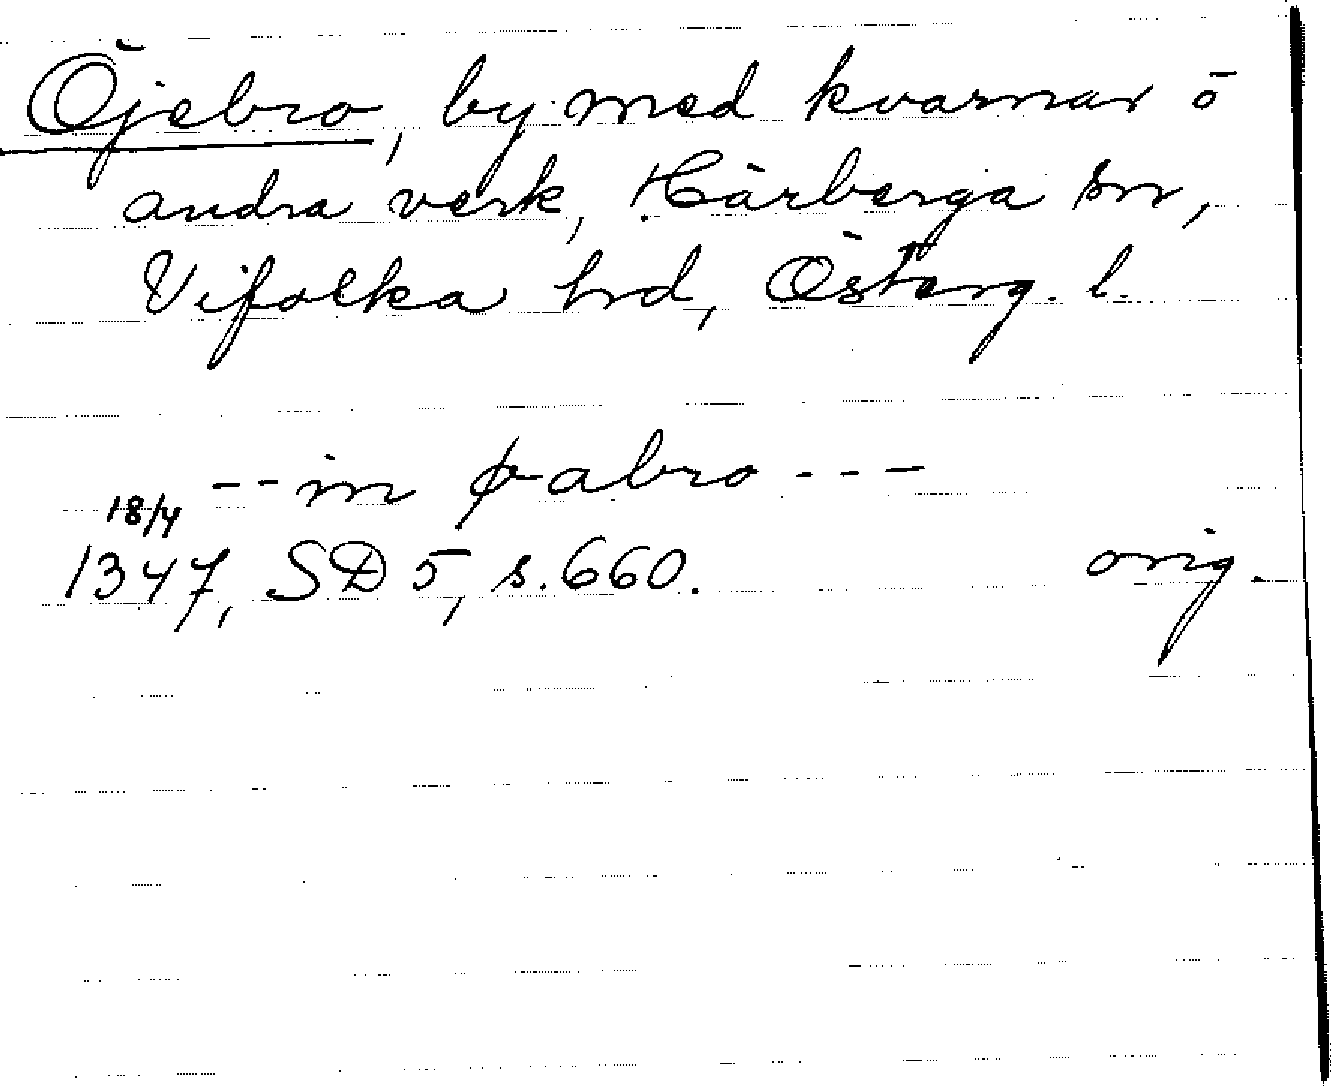 Öjebro, by med kvarnar o
andra verk, Härberga sn,
Vifolka hrd, Österg. l.
-- in øabro ---
18/4
1347, SD 5, s. 660. orig.